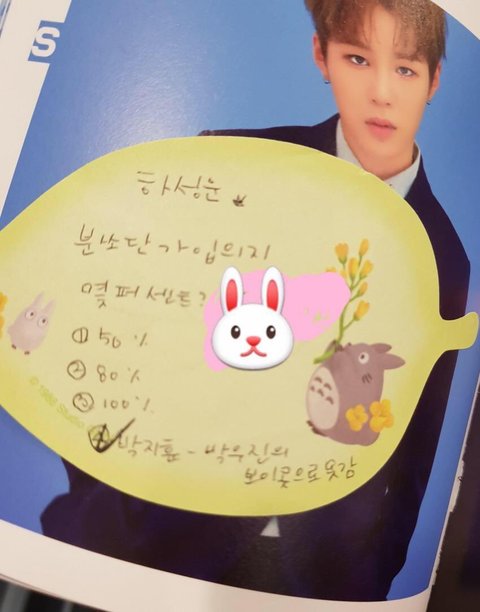 S
하성운
분쏘단 가입의지
몇 퍼센트?
① 50%
② 80%
③ 100%
④ 박지훈 - 박우진의
보이콧으로 못감
© 1988 Studio